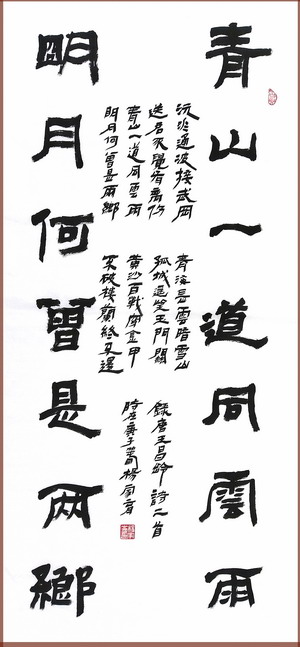 青山一道同雲雨
明月何曾是兩鄉
沅水通波接武岡
送君不覺有离傷
青山一道同雲雨
明月何曾是兩鄉
青海長雲暗雪山
孤城遥望玉門關
黄沙百戰穿金甲
不破樓蘭終不還
錄唐王昌齡詩二首
時在庚子